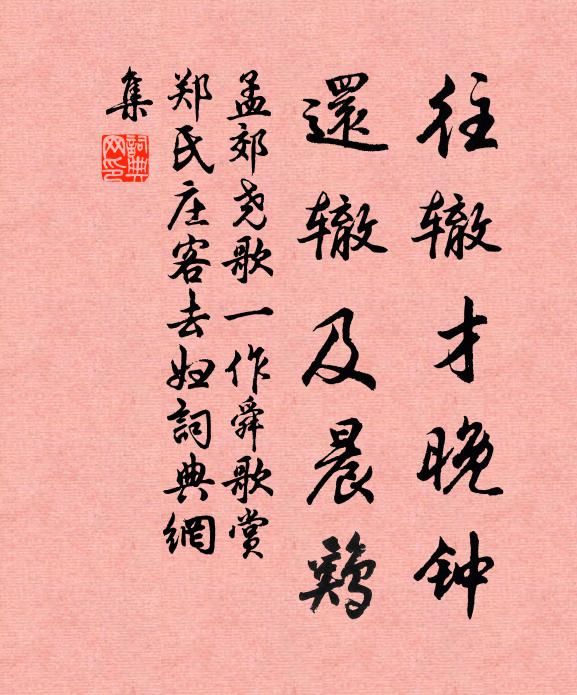 往辙才晚钟
還辙及晨鷄
孟郊尧歌一作舜歌赏
郑氏庄客去妇詞典網
集
詞典网印